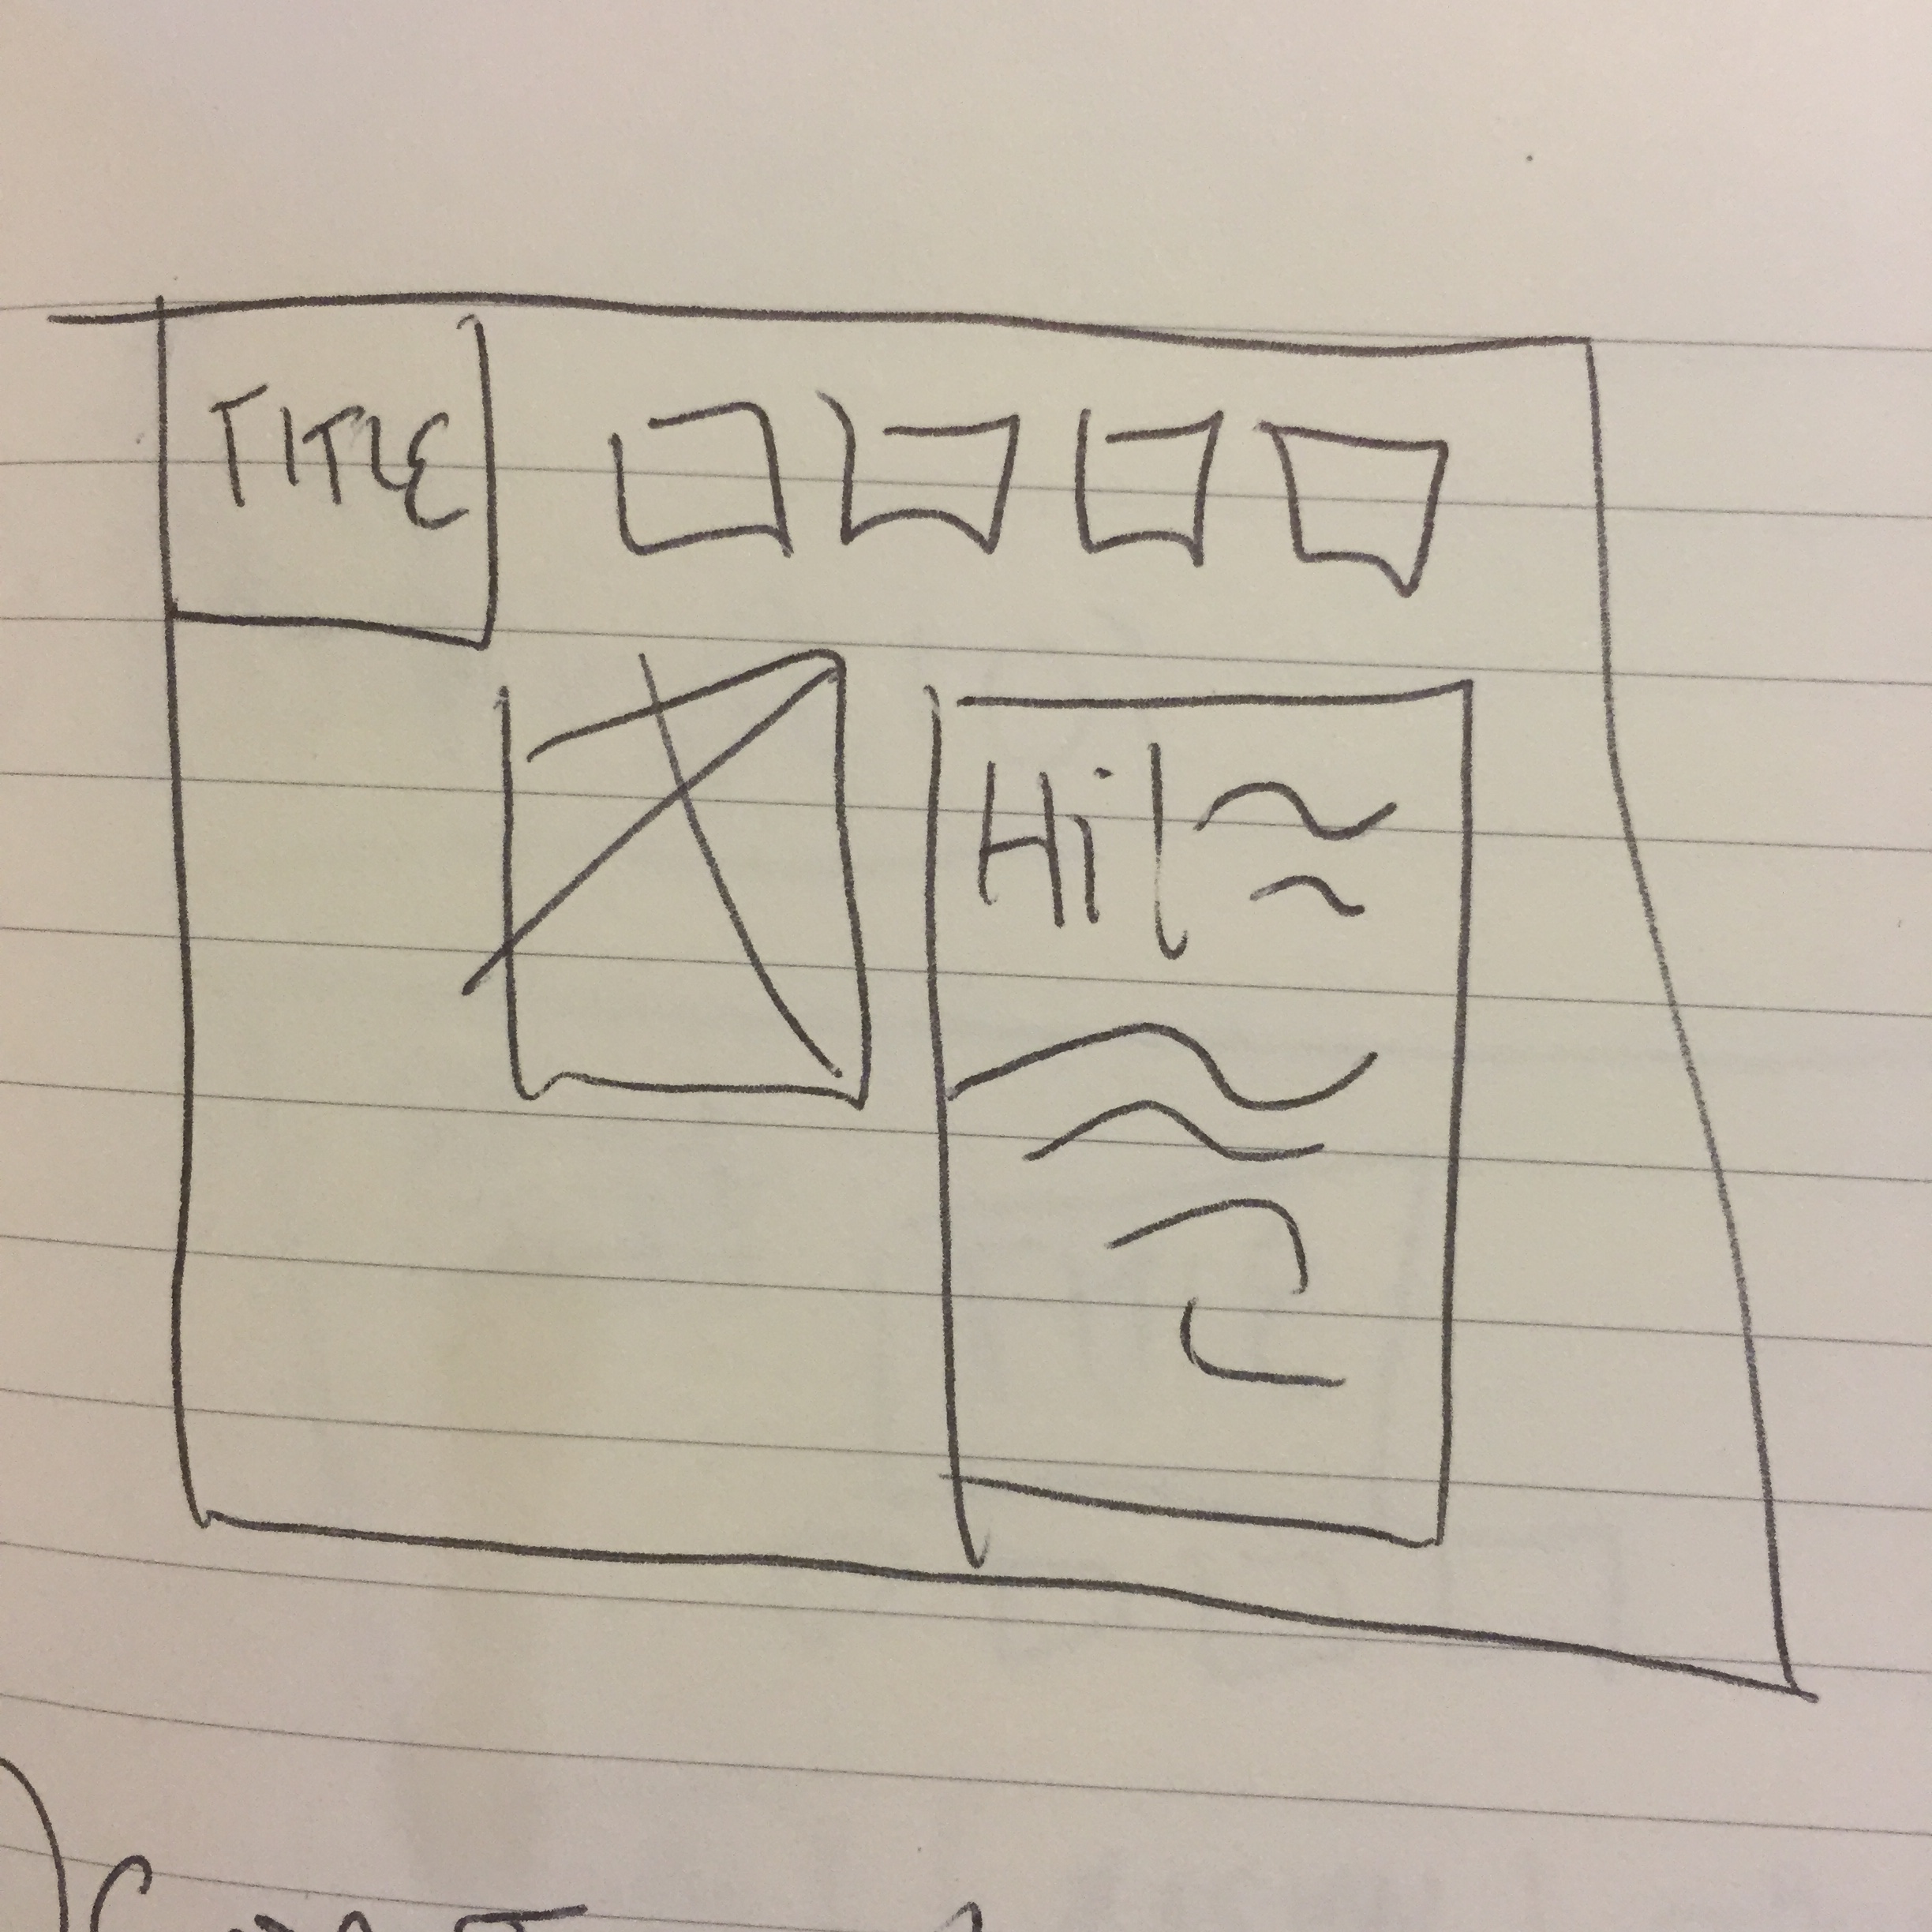 TITLE
Hi!